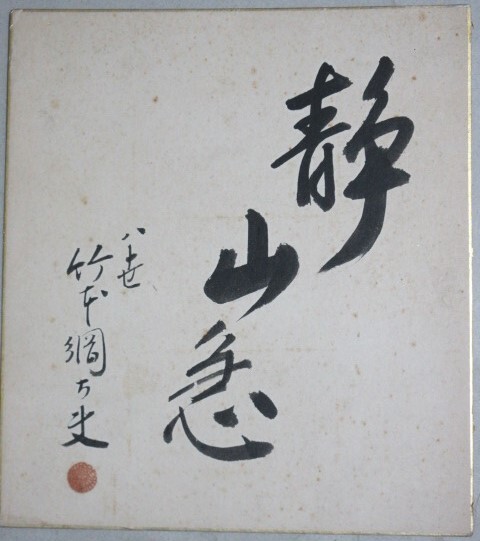 静山急
八世
竹本綱大夫